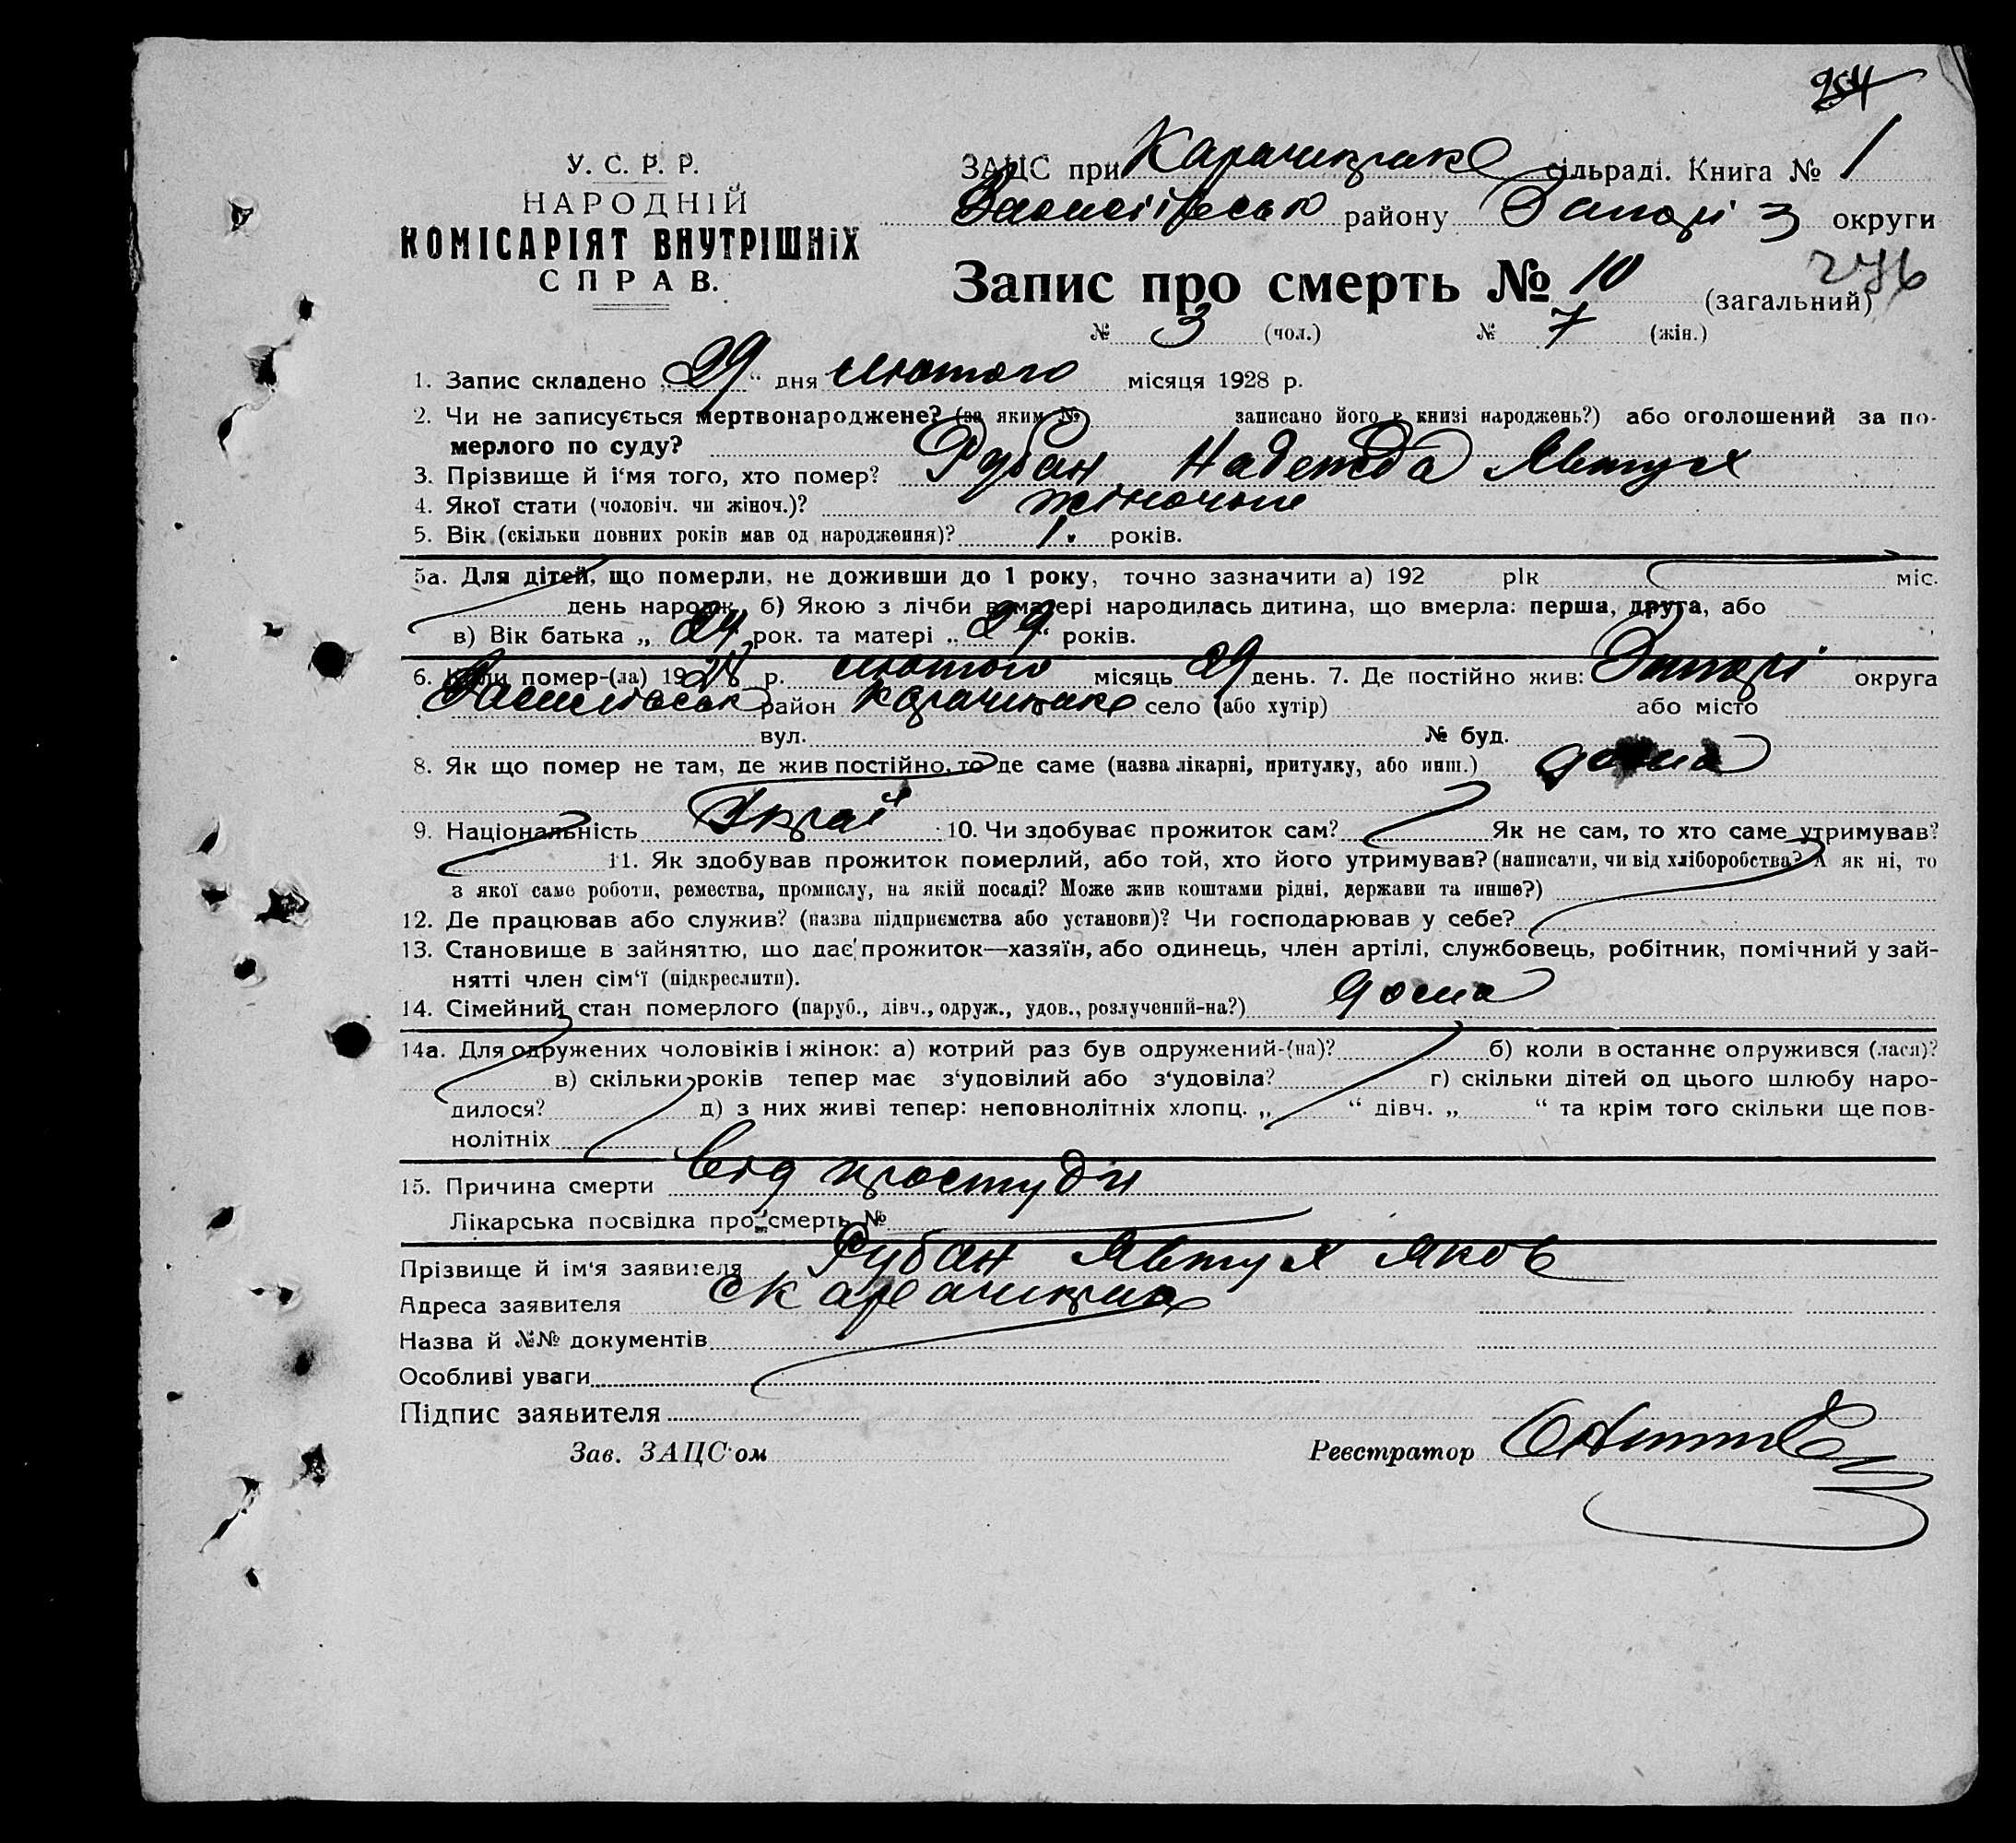 254
У. С. Р. Р.
НАРОДНІЙ
КОМІСАРІЯТ ВНУТРІШНІХ
СПРАВ.
ЗАЦС при Карачикрак сільраді. Книга № 1
Василівськ району Запорі з округи
Запис про смерть № 10 (загальний) 276
№ 3 (чол.) № 7 (жін.)
1. Запис складено „29“ дня лютого місяця 1928 р.
2. Чи не записується мертвонароджене? (за яким № записано його в книзі народжень?) або оголошений за по-
мерлого по суду?
3. Прізвище й і‘мя того, хто помер? Рубан Надежда Явтух
4. Якої стати (чоловіч. чи жіноч.)? жіночоі
5. Вік (скільки повних років мав од народження)? 1. років.
5а. Для дітей, що померли, не доживши до 1 року, точно зазначити а) 192 рік міс.
день народж., б) Якою з лічби в матері народилась дитина, що вмерла: перша, друга, або
в) Вік батька „ 24 рок. та матері „ 29 “ років.
6. Коли помер-(ла) 1928 р. лютого місяць 29 день. 7. Де постійно жив: Запорі округа
Василівськ район Карачикрак село (або хутір) або місто
вул. № буд.
8. Як що помер не там, де жив постійно, то де саме (назва лікарні, притулку, або инш.) дома
9. Національність Украї 10. Чи здобуває прожиток сам? Як не сам, то хто саме утримував?
11. Як здобував прожиток померлий, або той, хто його утримував? (написати, чи від хліборобства? А як ні, то
з якої саме роботи, ремества, промислу, на якій посаді? Може жив коштами рідні, держави та инше?)
12. Де працював або служив? (назва підприємства або установи)? Чи господарював у себе?
13. Становище в зайняттю, що дає прожиток—хазяїн, або одинець, член артілі, службовець, робітник, помічний у зай-
нятті член сім‘ї (підкреслити).
14. Сімейний стан померлого (паруб., дівч., одруж., удов., розлучений-на?) дома
14а. Для одружених чоловіків і жінок: а) котрий раз був одружений-(на)? б) коли в останнє одружився (лася)?
в) скільки років тепер має з‘удовілий або з‘удовіла? г) скільки дітей од цього шлюбу наро-
дилося? д) з них живі тепер: неповнолітніх хлопц. „ “ дівч. „ “ та крім того скільки ще пов-
нолітніх
15. Причина смерти від простуди
Лікарська посвідка про смерть №
Прізвище й ім‘я заявителя Рубан Явтух Яков
Адреса заявителя с Карачикрак
Назва й №№ документів
Особливі уваги
Підпис заявителя
Зав. ЗАЦС‘ом Реєстратор